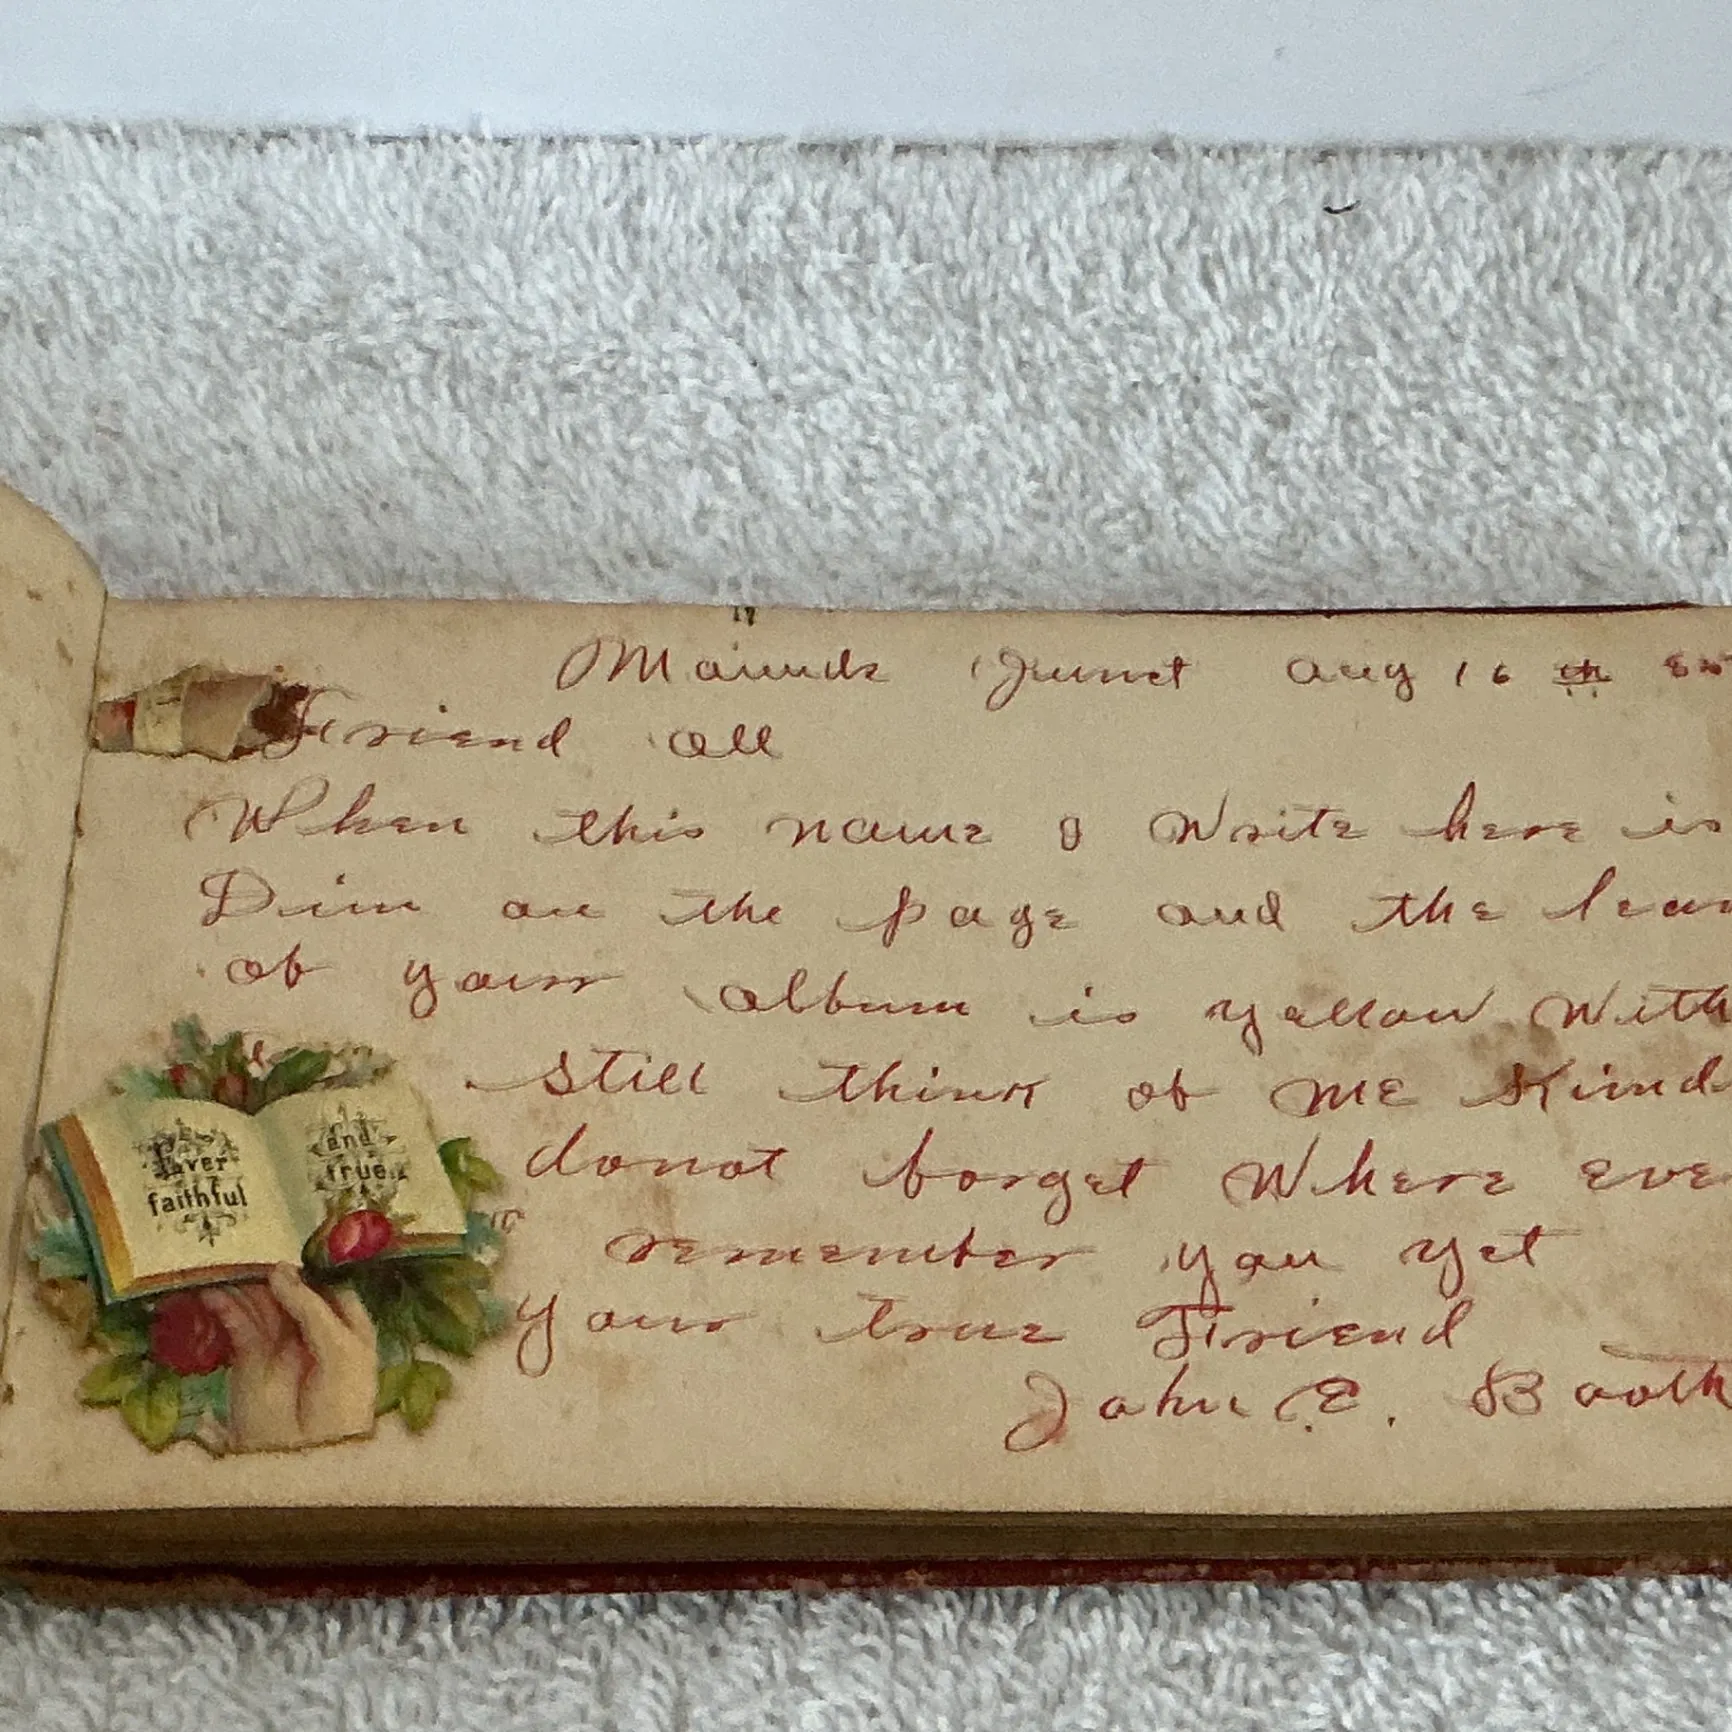 Mounds Junct Aug 16 th
Friend All
When this name I Write here is
Dim on the page and the
of your album is yellow With
still think of me Kind
donot forget Where eve
remember you yet
your true Friend
John E. Booth
Ever
faithful
and
true.